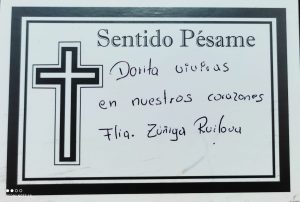 Sentido Pésame
Dorita viviras
en nuestros corazones
Flia. Zúñiga Ruilova